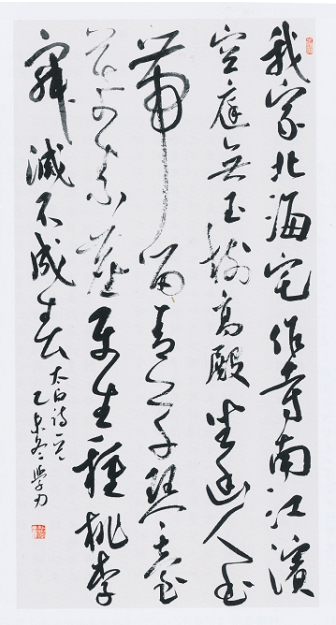 我家北海宅作寺南江濱
空庭無玉樹高殿坐幽人書
帶留青草琴堂
冪素塵平生種桃李
寂滅不成春
太白詩一首
乙未冬學力